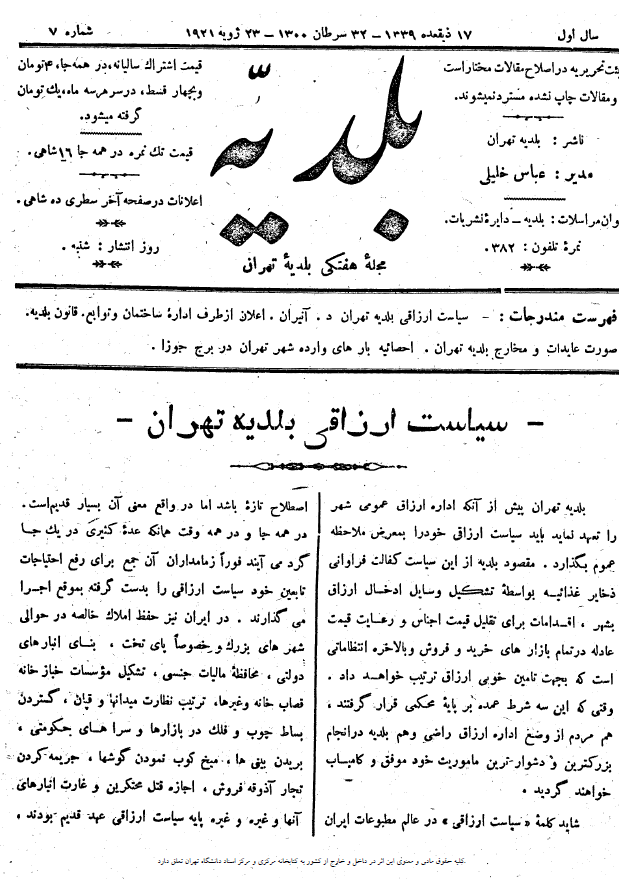 سال اول
۱۷ ذیقعده ۱۳۳۹ – ۳۲ سرطان ۱۳۰۰ – ۲۳ ژویه ۱۹۲۱
شماره ۷
ئت تحریریه در اصلاح مقالات مختار است
و مقالات چاپ نشده مسترد نمیشوند.
ناشر : بلدیه تهران
مدیر : عباس خلیلی
وان مراسلات : بلدیه – دایرۀ نشریات.
نمرۀ تلفون : ۳۸۲.
بلدیّه
مجلۀ هفتگی بلدیۀ تهران
قیمت اشتراك سالیانه، در همه جا، ۴ تومان
و بچهار قسط، در سر هر سه ماه، یك تومان
گرفته میشود.
قیمت تك نمره در همه جا ۱۶ شاهی.
اعلانات در صفحه آخر سطری ده شاهی.
روز انتشار : شنبه.
فهرست مندرجات : – سیاست ارزاقی بلدیه تهران د . آنیران . اعلان از طرف ادارۀ ساختمان و توابع. قانون بلدیه.
صورت عایدات و مخارج بلدیه تهران . احصائیه بار های وارده شهر تهران در برج جوزا .
– سیاست ارزاقی بلدیه تهران –
بلدیه تهران بیش از آنکه اداره ارزاق عمومی شهر
را تعهد نماید باید سیاست ارزاقی خودرا بمعرض ملاحظه
عموم بگذارد . مقصود بلدیه از این سیاست کفالت فراوانی
ذخایر غذائیه بواسطۀ تشکیل وسایل ادخال ارزاق
بشهر ، اقدامات برای تقلیل قیمت اجناس و رعایت قیمت
عادله در تمام بازار های خرید و فروش و بالاخره انتظاماتی
است که بجهت تامین خوبی ارزاق ترتیب خواهد داد .
وقتی که این سه شرط عمده بر پایۀ محکمی قرار گرفتند ،
هم مردم از وضع اداره ارزاق راضی و هم بلدیه در انجام
بزرکترین و دشوار ترین ماموریت خود موفق و کامیاب
خواهند گردید .
شاید کلمۀ « سیاست ارزاقی » در عالم مطبوعات ایران
اصطلاح تازۀ باشد اما در واقع معنی آن بسیار قدیم است.
در همه جا و در همه وقت همانکه عدۀ کثیری در یك جا
گرد می آیند فوراً زمامداران آن جمع برای رفع احتیاجات
تابعین خود سیاست ارزاقی را بدست گرفته بموقع اجرا
می گذارند . در ایران نیز حفظ املاك خالصه در حوالی
شهر های بزرك و خصوصاً پای تخت ، بنای انبارهای
دولتی ، محافظۀ مالیات جنسی ، تشکیل مؤسسات خباز خانه
قصاب خانه وغیرها، ترتیب نظارت میدانها و قپان ، گستردن
بساط چوب و فلك در بازارها و سرا های حکومتی ،
بریدن بینی ها ، میخ کوب نمودن گوشها ، جریمه کردن
تجار آذوقه فروش ، اجازه قتل محتکرین و غارت انبارهای
آنها و غیره و غیره پایه سیاست ارزاقی عهد قدیم بودند ،
کلیه حقوق مادی و معنوی این اثر در داخل و خارج از کشور به کتابخانه مرکزی و مرکز اسناد دانشگاه تهران تعلق دارد.